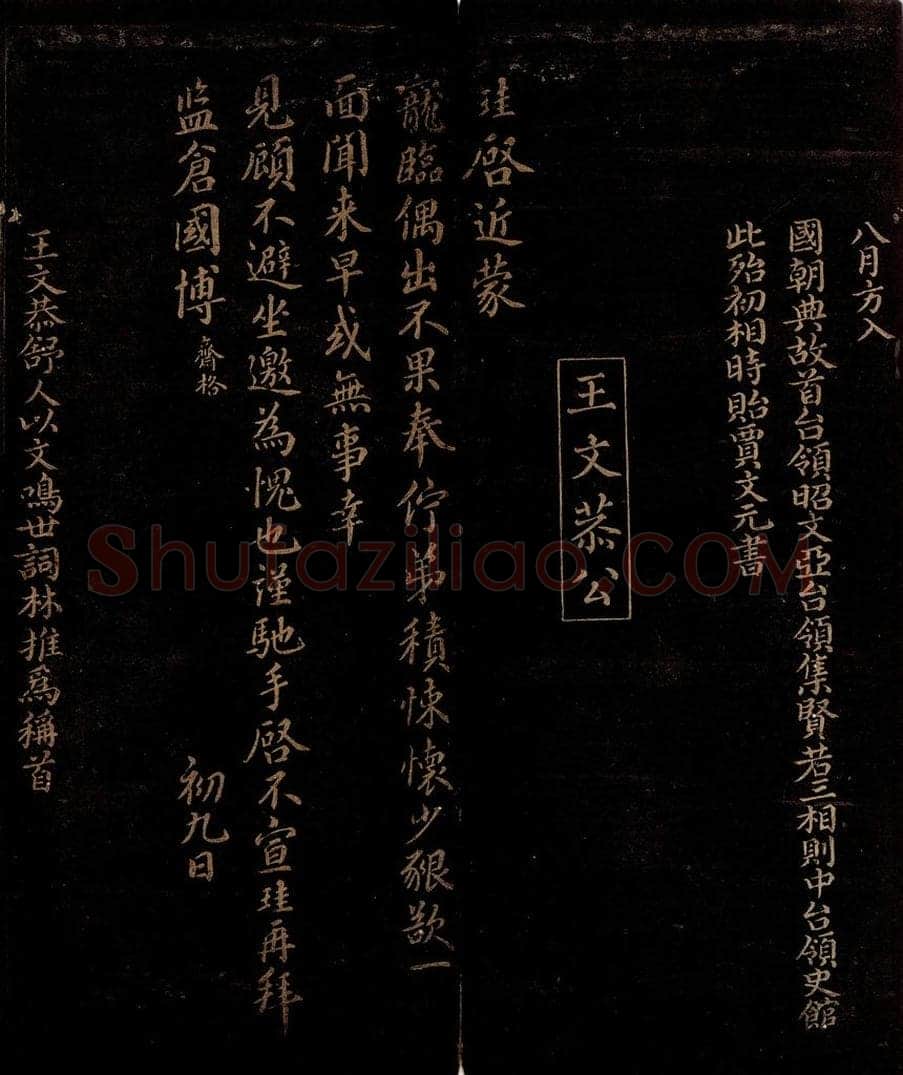 八月方入
國朝典故首台領昭文亞台領集賢若三相則中台領史館
此殆初相時貽賈文元書
王文恭公
珪啓近蒙
寵臨偶出不果奉佇第積悚懷少懇欲一
面聞来早或無事幸
見顧不避坐邀為愧也謹馳手啓不宣珪再拜
監倉國博 齊 初九日
王文恭舒人以文鳴世詞林推爲稱首
Shufaziliao.COM